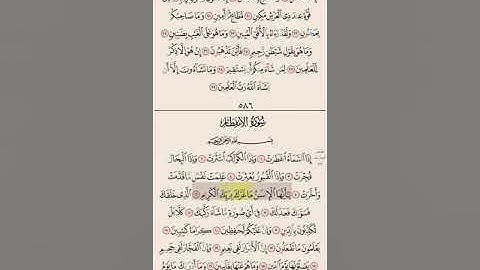 قُوَّةٍ عِندَ ذِي الْعَرْشِ مَكِينٍ ۝ مُّطَاعٍ ثَمَّ أَمِينٍ ۝ وَمَا صَاحِبُكُم
بِمَجْنُونٍ ۝ وَلَقَدْ رَءَاهُ بِالْأُفُقِ الْمُبِينِ ۝ وَمَا هُوَ عَلَى الْغَيْبِ بِضَنِينٍ ۝
وَمَا هُوَ بِقَوْلِ شَيْطَانٍ رَّجِيمٍ ۝ فَأَيْنَ تَذْهَبُونَ ۝ إِنْ هُوَ إِلَّا ذِكْرٌ
لِّلْعَالَمِينَ ۝ لِمَن شَاءَ مِنكُمْ أَن يَسْتَقِيمَ ۝ وَمَا تَشَاءُونَ إِلَّا أَن
يَشَاءَ اللَّهُ رَبُّ الْعَالَمِينَ ۝
٥٨٦
سُورَةُ الِانفِطَارِ
بِسْمِ اللَّهِ الرَّحْمَٰنِ الرَّحِيمِ
إِذَا السَّمَاءُ انفَطَرَتْ ۝ وَإِذَا الْكَوَاكِبُ انتَثَرَتْ ۝ وَإِذَا الْبِحَارُ
فُجِّرَتْ ۝ وَإِذَا الْقُبُورُ بُعْثِرَتْ ۝ عَلِمَتْ نَفْسٌ مَّا قَدَّمَتْ
وَأَخَّرَتْ ۝ يَا أَيُّهَا الْإِنسَانُ مَا غَرَّكَ بِرَبِّكَ الْكَرِيمِ ۝ الَّذِي خَلَقَكَ
فَسَوَّاكَ فَعَدَلَكَ ۝ فِي أَيِّ صُورَةٍ مَّا شَاءَ رَكَّبَكَ ۝ كَلَّا بَلْ
تُكَذِّبُونَ بِالدِّينِ ۝ وَإِنَّ عَلَيْكُمْ لَحَافِظِينَ ۝ كِرَامًا كَاتِبِينَ ۝
يَعْلَمُونَ مَا تَفْعَلُونَ ۝ إِنَّ الْأَبْرَارَ لَفِي نَعِيمٍ ۝ وَإِنَّ الْفُجَّارَ لَفِي جَحِيمٍ ۝
يَصْلَوْنَهَا يَوْمَ الدِّينِ ۝ وَمَا هُمْ عَنْهَا بِغَائِبِينَ ۝ وَمَا أَدْرَاكَ مَا يَوْمُ